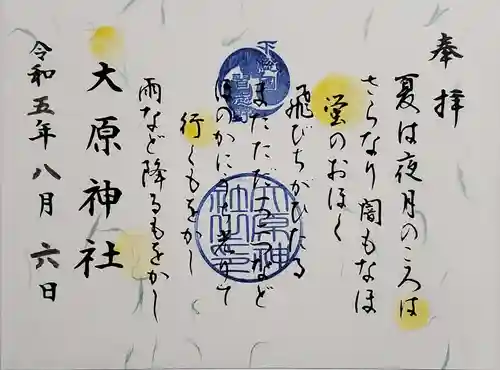 奉拝
夏は夜月のころは
さらなり闇もなほ
蛍のおほく
飛びちがひたる
まただた一つ二つなど
ほのかにうち光りて
行くもをかし
雨など降るもをかし
大原神社
令和五年八月六日